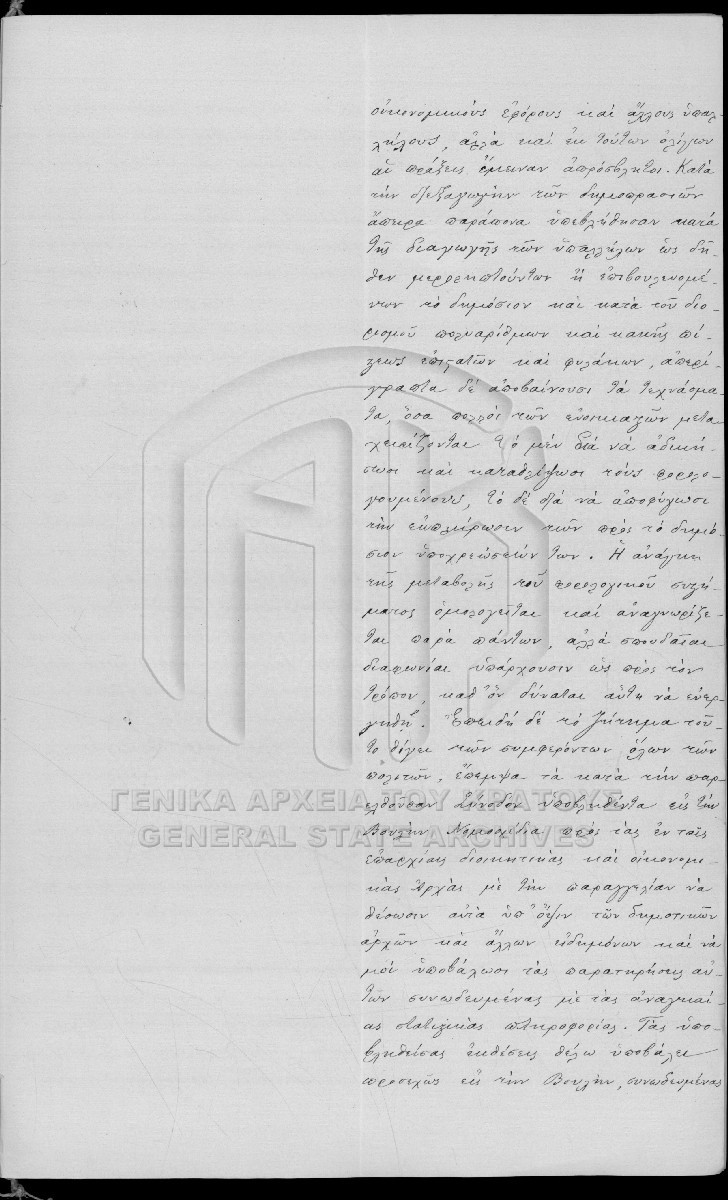 οἰκονομικοὺς ἐφόρους καὶ ἄλλους ὑπαλ-
λήλους, ἀλλὰ καὶ ἐκ τούτων ὀλίγων
αἱ πράξεις ἔμειναν ἀπρόσβλητοι. Κατὰ
τὴν διεξαγωγὴν τῶν δημοπρασιῶν
ἄπειρα παράπονα ὑπεβλήθησαν κατὰ
τῆς διαγωγῆς τῶν ὑπαλλήλων ὡς δῆ-
θεν μεροληπτούντων ἢ ἐπιβουλευομέ-
νων τὸ δημόσιον καὶ κατὰ τοῦ διο-
ρισμοῦ πολυαρίθμων καὶ κακῆς πί-
στεως ἐπιστατῶν καὶ φυλάκων, ἀπερί-
γραπτα δὲ ἀποβαίνουσι τὰ τεχνάσμα-
τα, ὅσα πολλοὶ τῶν ἐνοικιαστῶν μετα-
χειρίζονται τὸ μὲν διὰ νὰ ἀδικήσωσι
καὶ καταθλίψωσι τοὺς φορολο-
γουμένους, τὸ δὲ διὰ νὰ ἀποφύγωσι
τὴν ἐκπλήρωσιν τῶν πρὸς τὸ δημό-
σιον ὑποχρεώσεών των. Ἡ ἀνάγκη
τῆς μεταβολῆς τοῦ φορολογικοῦ συστή-
ματος ὁμολογεῖται καὶ ἀναγνωρίζε-
ται παρὰ πάντων, ἀλλὰ σπουδαῖαι
διαφωνίαι ὑπάρχουσιν ὡς πρὸς τὸν
τρόπον, καθ' ὃν δύναται αὕτη νὰ ἐνερ-
γηθῇ. Ἐπειδὴ δὲ τὸ ζήτημα τοῦ-
το θίγει τῶν συμφερόντων ὅλων τῶν
πολιτῶν, ἔπεμψα τὰ κατὰ τὴν παρ-
ελθοῦσαν Σύνοδον ὑποβληθέντα εἰς τὴν
Βουλὴν Νομοσχέδια πρὸς τὰς ἐν ταῖς
ἐπαρχίαις διοικητικὰς καὶ οἰκονομι-
κὰς Ἀρχὰς μὲ τὴν παραγγελίαν νὰ
θέσωσιν αὐτὰ ὑπ' ὄψιν τῶν δημοτικῶν
ἀρχῶν καὶ ἄλλων εἰδημόνων καὶ νὰ
μοὶ ὑποβάλωσι τὰς παρατηρήσεις αὐ-
τῶν συνωδευμένας μὲ τὰς ἀναγκαί-
ας στατιστικὰς πληροφορίας. Τὰς ὑπο-
βληθείσας ἐκθέσεις θέλω ὑποβάλει
προσεχῶς εἰς τὴν Βουλὴν, συνωδευμένας
ΓΕΝΙΚΑ ΑΡΧΕΙΑ ΤΟΥ ΚΡΑΤΟΥΣ
GENERAL STATE ARCHIVES